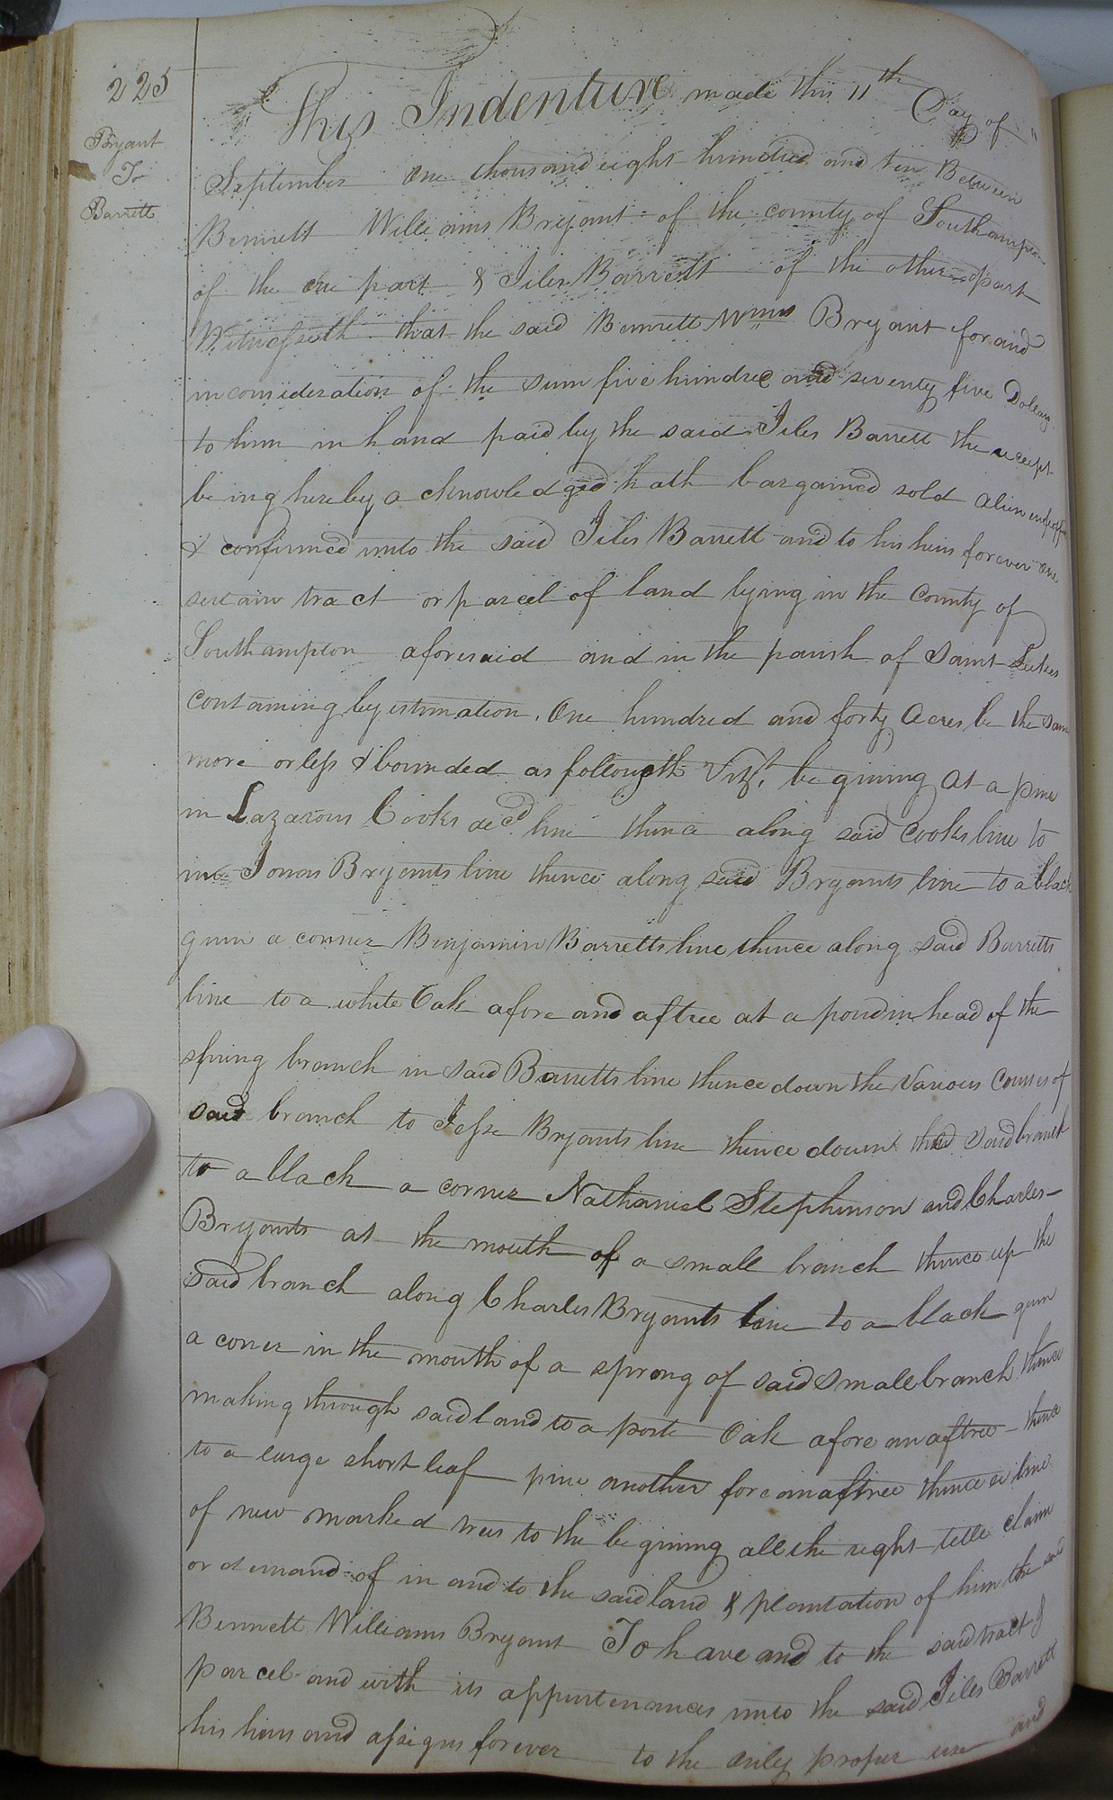 225
Bryant
To
Barrett
This Indenture made this 11th Day of
September One thousand eight hundred and ten Between
Bennett Williams Bryant of the county of Southampton
of the one part & Jiles Barrett of the other part
Witnesseth that the said Bennett Wmms Bryant for and
in consideration of the sum five hundred and seventy five Dolears
to him in hand paid by the said Jiles Barrett the receipt
being hereby acknowledged hath bargained sold alien enfeoffe
& confirmed unto the said Jiles Barrett and to his heirs forever one
sertain tract or parcel of land lying in the County of
Southampton aforesaid and in the parish of Saint Lukes
containing by estimation, One hundred and forty Acres be the same
more or less & bounded as followeth Vizt, begining at a pine
in Lazarous Cooks decd line thence along said Cooks line to
Jonas Bryants line thence along said Bryants line to a black
gum a corner Benjamin Barretts line thence along said Barretts
line to a white Oak afore and aftree at a pond in head of the
spring branch in said Barretts line thence down the Various Courses of
said branch to Jesse Bryants line thence down the said branch
to a black a corner Nathaniel Stephenson and Charles
Bryants at the mouth of a small branch thence up the
said branch along Charles Bryants line to a black gum
a coner in the mouth of a sprong of said small branch thence
making through said land to a poste Oak afore an aftree thence
to a large short leaf pine another fore an aftree thence a line
of new marked trees to the begining all the right title claim
or demand of in and to the said land & plantation of him the said
Bennett Williams Bryant To have and to the said tract
parcel and with its appurtenances unto the said Jiles Barrett
his heirs and assigns forever to the only proper use and